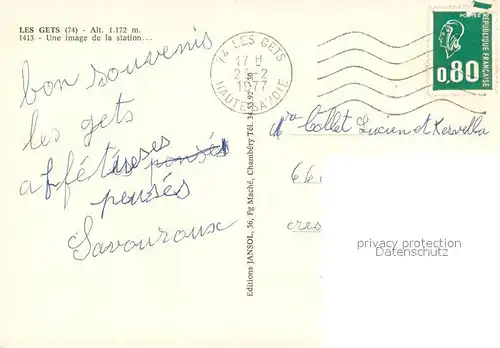 LES GETS (74) - Alt. 1.172 m.
1413 - Une image de la station...
74 LES GETS
17 H
23-2
1977
HAUTE-SAVOIE
POSTES
REPUBLIQUE FRANÇAISE
0,80
bon souvenis
les gets
afféteuses pensés
pensés
Savouroux
Editions JANSOL, 56, Fg Maché, Chambéry Tél.
Collet Lucien et Kervella
66
cres
privacy protection
Datenschutz